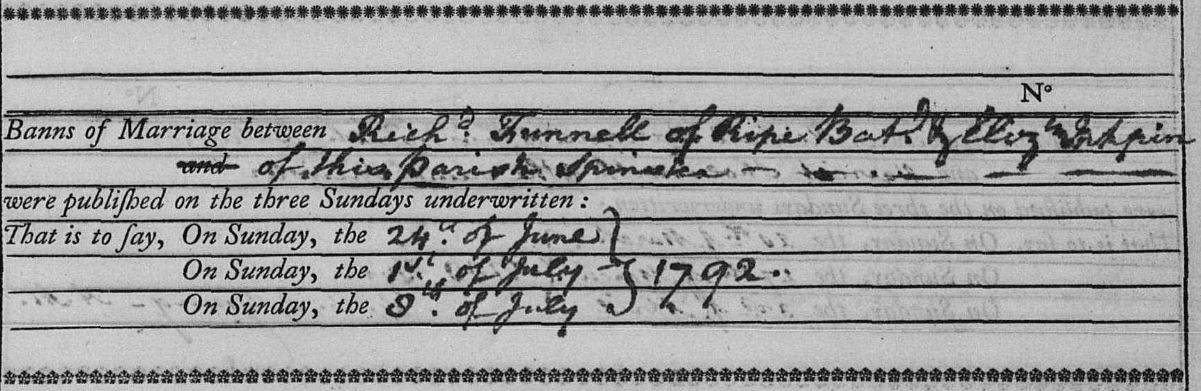 Nº
Banns of Marriage between Richd. Funnell of Ripe Batr. & Elizth Inkpin
and of this parish Spinster
were publiſhed on the three Sundays underwritten:
That is to ſay, On Sunday, the 24th. of June
On Sunday, the 1st. of July 1792.
On Sunday, the 8th. of July